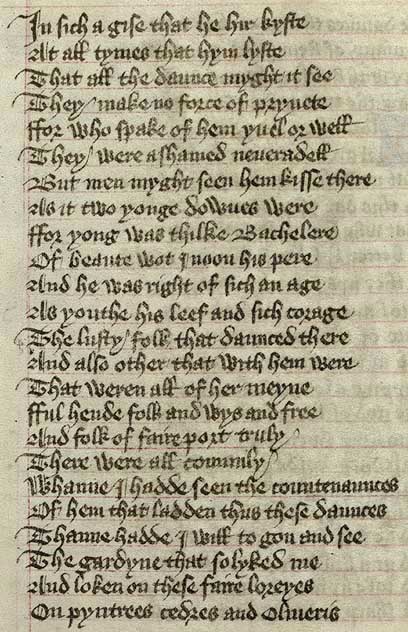 In sich a gise that he hir kyste
At all tymes that hym lyste
That all the daunce myght it see
They make no force of pryuete
ffor who spake of hem yuel or well
They were ashamed neueradell
But men myght seen hem kisse there
As it two yonge dowues were
ffor yong was thilke Bachelere
Of beaute wot I noon his pere
And he was right of sich an age
As youthe his leef and sich corage
The lusty folk that daunced there
And also other that with hem were
That weren all of her meyne
fful hende folk and wys and free
And folk of faire port truly
There were all comunly
Whanne I hadde seen the countenaunces
Of hem that ladden thus these daunces
Thanne hadde I will to gon and see
The gardyne that so lyked me
And loken on these faire loreyes
On pyntrees cedres and Oliueris